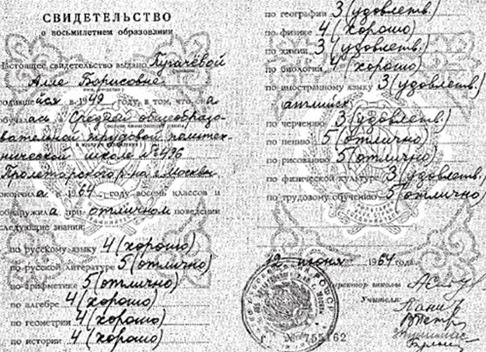 СВИДЕТЕЛЬСТВО
о восьмилетнем образовании
Настоящее свидетельство выдано Пугачёвой
Алле Борисовне
родившейся в 1949 году, в том, что она
обучалась в Средней общеобразо-
вательной трудовой политех-
нической школе № 496
Пролетарского р-на г. Москвы
окончила в 1964 году восемь классов и
обнаружила при отличном поведении
следующие знания:
по русскому языку 4 (хорошо)
по русской литературе 5 (отлично)
по арифметике 5 (отлично)
по алгебре 4 (хорошо)
по геометрии 4 (хорошо)
по истории 4 (хорошо)
по географии 3 (удовлетв.)
по физике 4 (хорошо)
по химии 3 (удовлетв.)
по биологии 4 (хорошо)
по иностранному языку 3 (удовлетв.)
английск.
по черчению 3 (удовлетв.)
по пению 5 (отлично)
по рисованию 5 (отлично)
по физической культуре 3 (удовлетв.)
по трудовому обучению 5 (отлично)
12 июня 1964 года.
Директор школы
Учителя:
Г № 755162